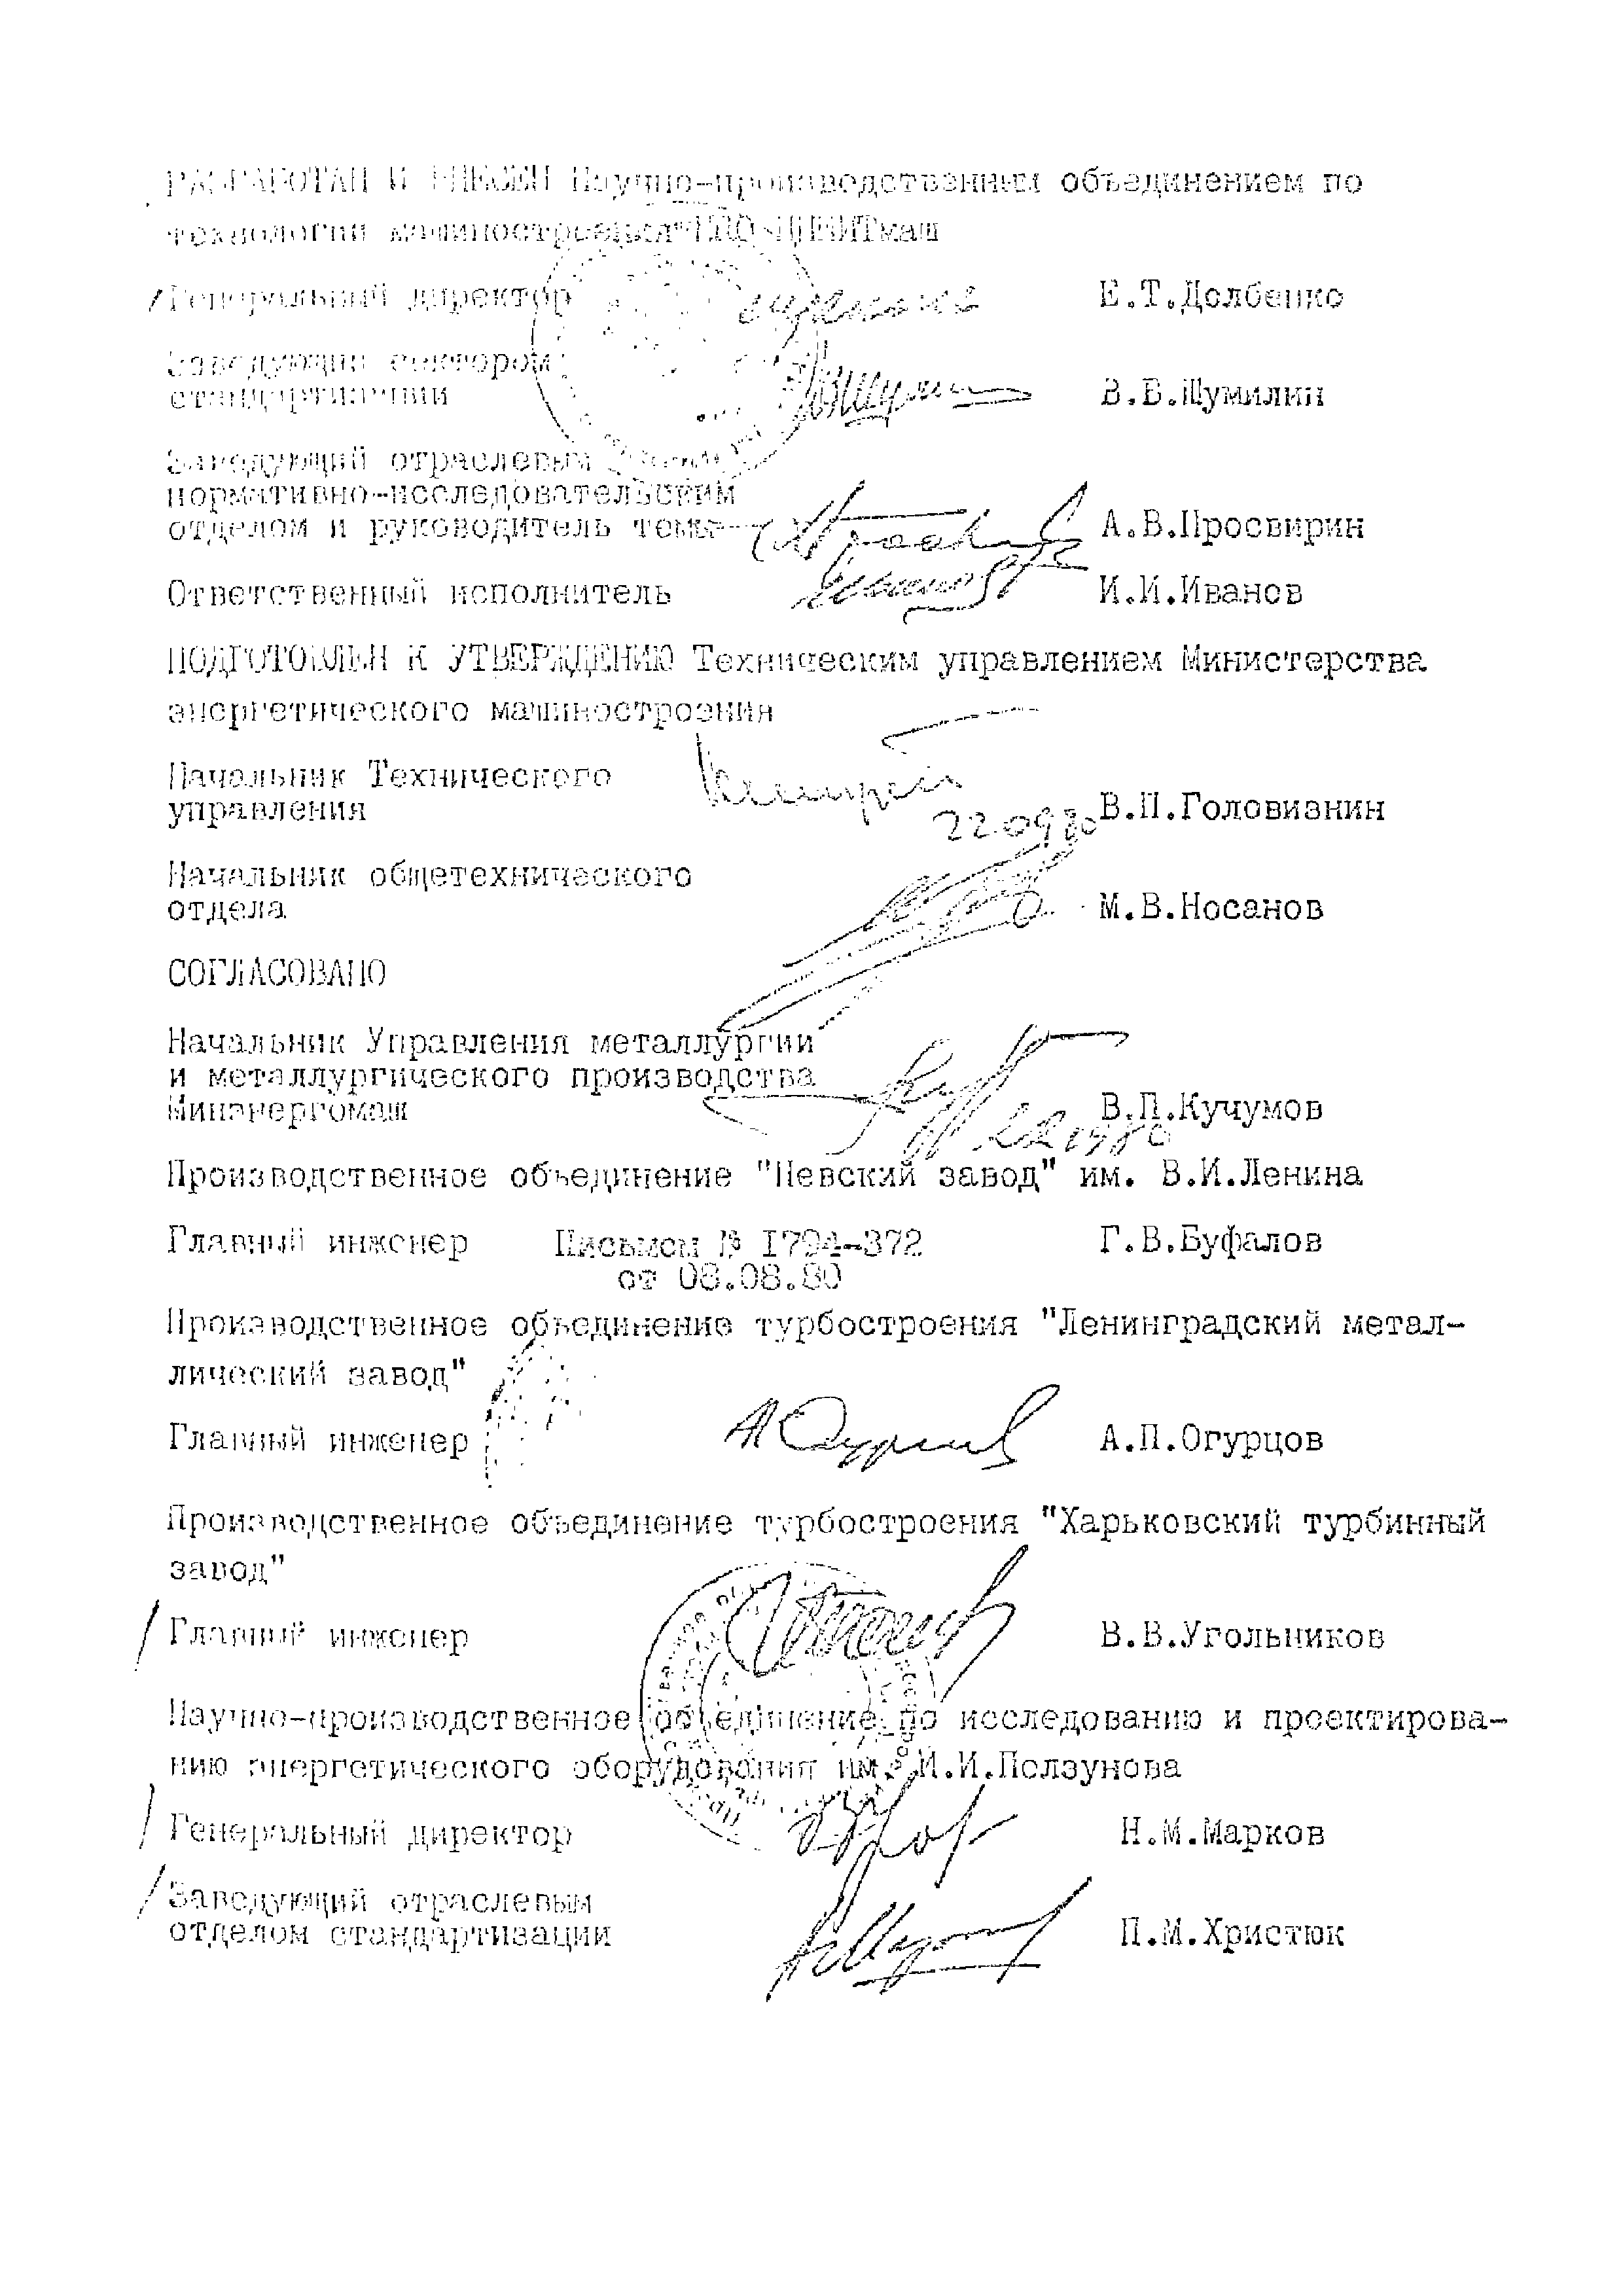 РАЗРАБОТАН И ВНЕСЕН Научно-производственным объединением по
технологии машиностроения НПО ЦНИИТмаш
Генеральный директор Е.Т.Долбенко
Заведующий сектором
стандартизации В.В.Шумилин
Заведующий отраслевым
нормативно-исследовательским
отделом и руководитель темы А.В.Просвирин
Ответственный исполнитель И.И.Иванов
ПОДГОТОВЛЕН К УТВЕРЖДЕНИЮ Техническим управлением Министерства
энергетического машиностроения
Начальник Технического
управления 22 09 80 В.П.Головизнин
Начальник общетехнического
отдела М.В.Носанов
СОГЛАСОВАНО
Начальник Управления металлургии
и металлургического производства
Минэнергомаш В.П.Кучумов
Производственное объединение "Невский завод" им. В.И.Ленина
Главный инженер Письмом № I794-372 Г.В.Буфалов
от 08.08.80
Производственное объединение турбостроения "Ленинградский метал-
лический завод"
Главный инженер А.П.Огурцов
Производственное объединение турбостроения "Харьковский турбинный
завод"
Главный инженер В.В.Угольников
Научно-производственное объединение по исследованию и проектирова-
нию энергетического оборудования им. И.И.Ползунова
Генеральный директор Н.М.Марков
Заведующий отраслевым
отделом стандартизации П.М.Христюк